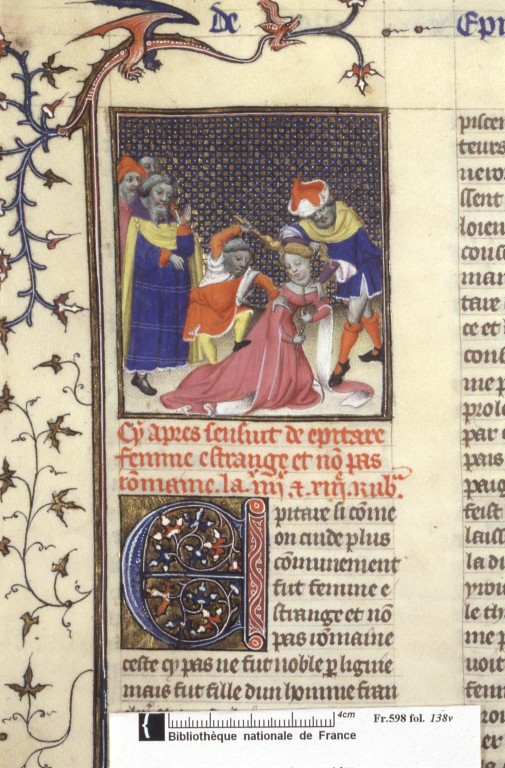 De
Epi
Cy apres sensuit de epitare
femme estrange et nõ pas
rõmaine. la iiii & xiiij. Rub.
Epitare si cõme
on cuide plus
cõmunement
fut femme e
strange et nõ
pas rõmaine
ceste cy pas ne fut noble p ligniee
mais fut fille dun homme fran
piscen
teurs
ssent
loien
couse
man
tare
ce et
cons
me p
prole
par
pais
feist
laiss
la di
le th
me p
uoit
fem
4cm
Fr.598 fol. 138v
Bibliothèque nationale de France